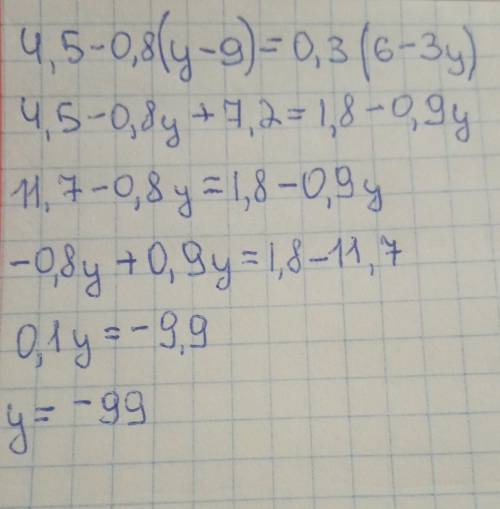 4,5-0,8(y-9)=0,3(6-3y)
4,5-0,8y+7,2=1,8-0,9y
11,7-0,8y=1,8-0,9y
-0,8y+0,9y=1,8-11,7
0,1y=-9,9
y=-99